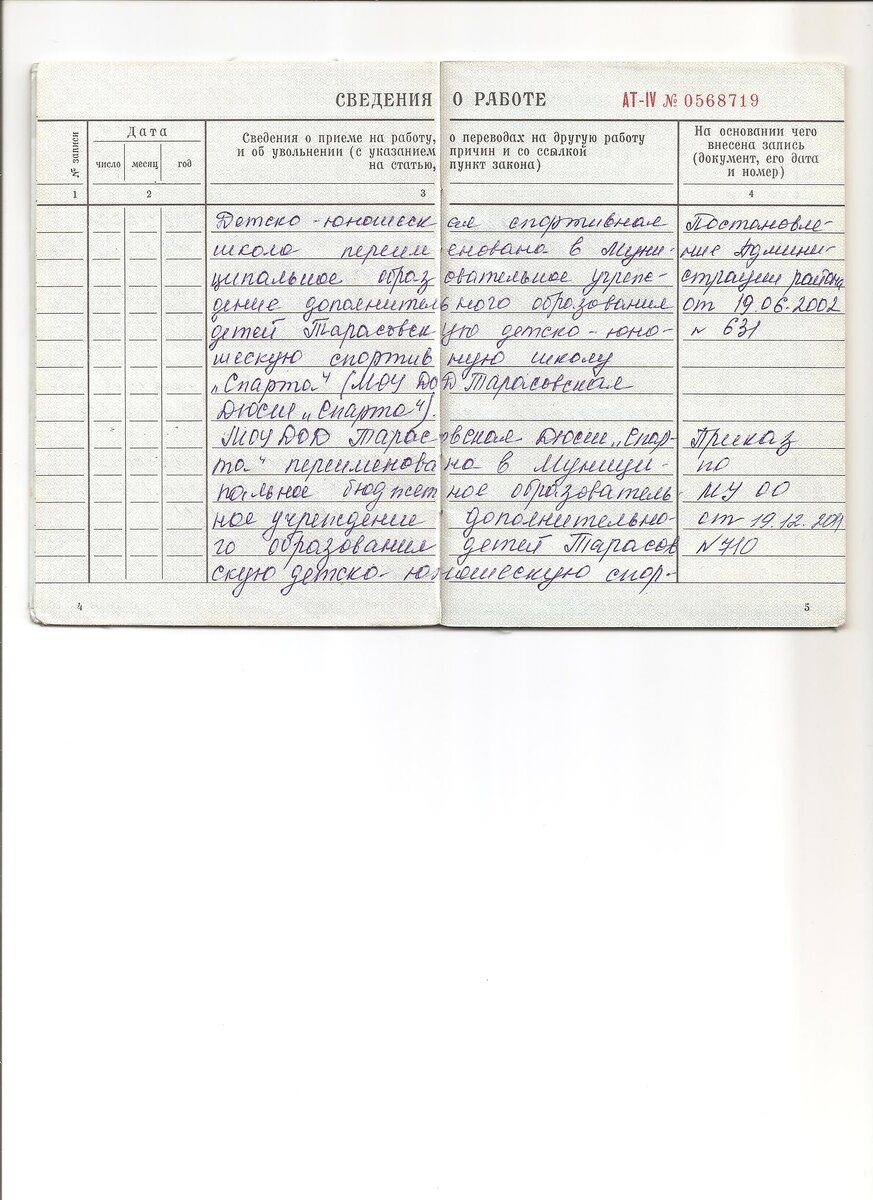 СВЕДЕНИЯ О РАБОТЕ АТ-IV № 0568719
№ записи
Дата
число месяц год
Сведения о приеме на работу, о переводах на другую работу
и об увольнении (с указанием причин и со ссылкой
на статью, пункт закона)
На основании чего
внесена запись
(документ, его дата
и номер)
1 2 3 4
Детско-юношеская спортивная Постановле-
школа переименована в Муни- ние Админи-
ципальное образовательное учреж- страции района
дение дополнительного образования от 19.06.2002
детей Тарасовскую детско-юно- № 631
шескую спортивную школу
„Спарта" (МОУ ДОД Тарасовская
ДЮСШ „Спарта").
МОУ ДОД Тарасовская ДЮСШ „Спар- Приказ
та" переименована в Муници- по
пальное бюджетное образователь- МУ ОО
ное учреждение дополнительно- от 19.12.2011
го образования детей Тарасов № 710
скую детско-юношескую спор-
4 5